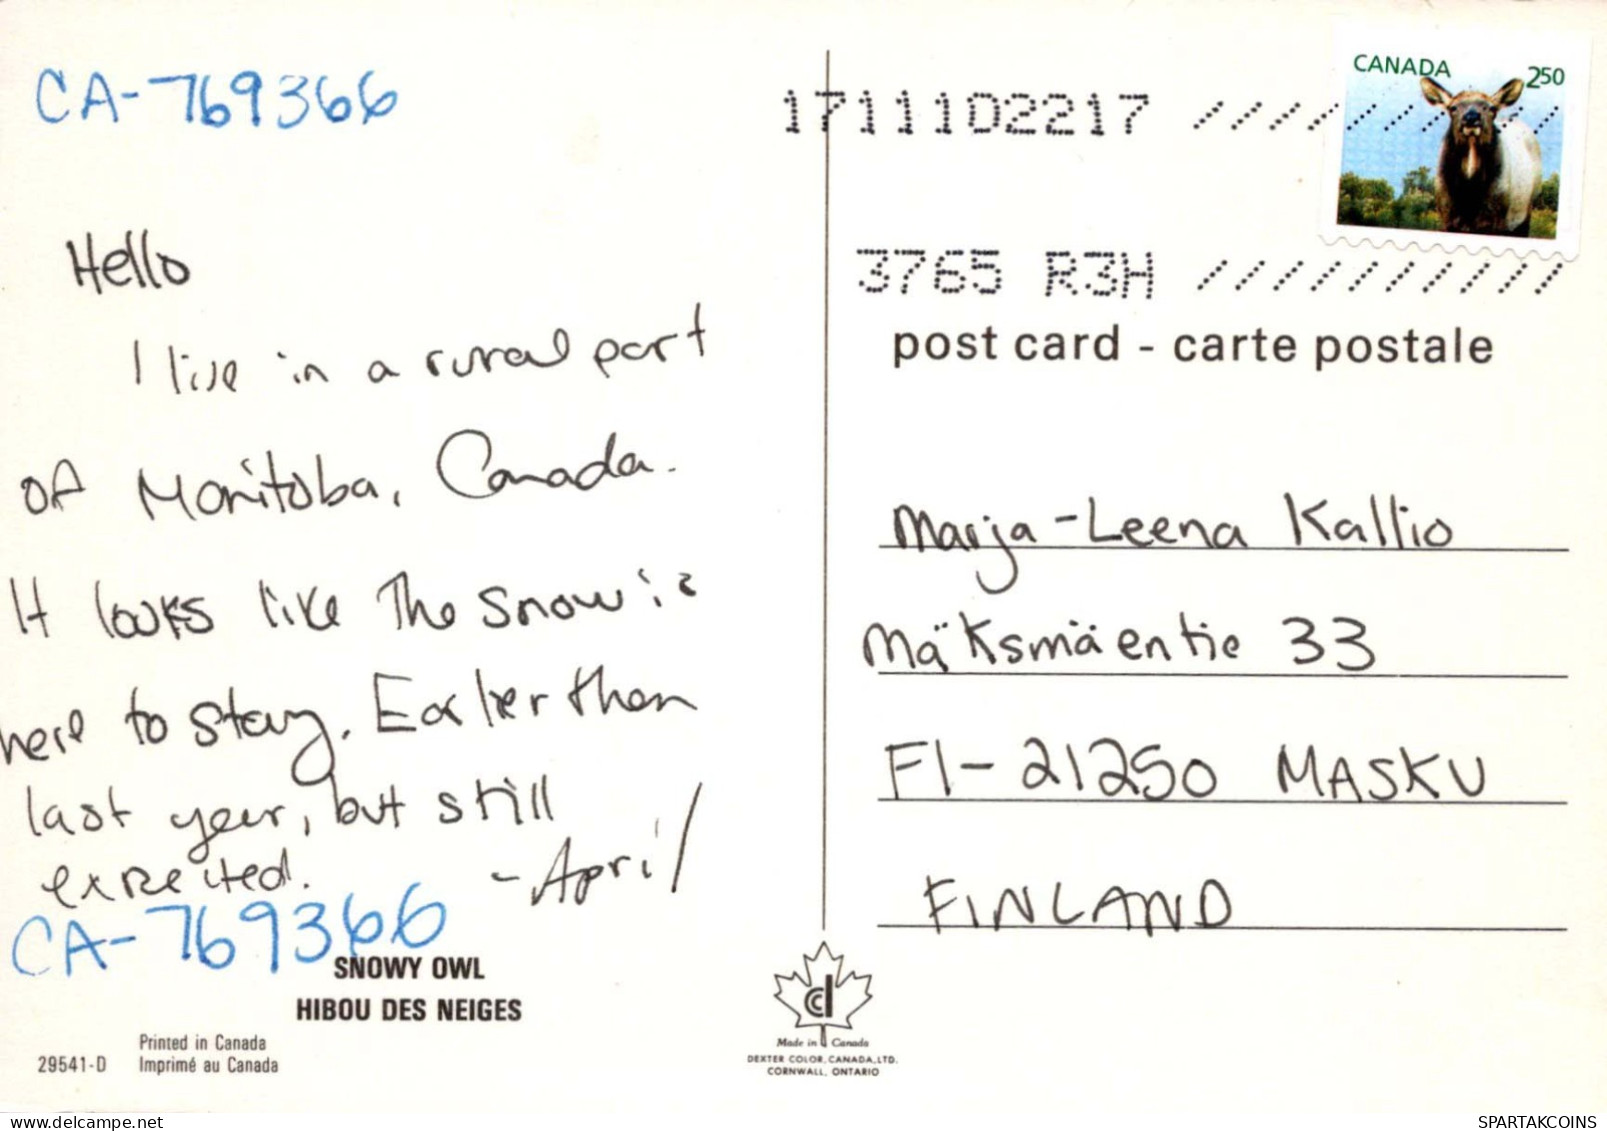 CA-769366
Hello
I live in a rural part
of Manitoba, Canada.
It looks like the snow is
here to stay. Earlier then
last year, but still
expected.
-April
CA-769366
SNOWY OWL
HIBOU DES NEIGES
29541-D
Printed in Canada
Imprimé au Canada
17111D2217
CANADA
250
3765 R3H
post card - carte postale
Marja-Leena Kallio
Mäksmäentie 33
FI-21250 MASKU
FINLAND
Made in Canada
DEXTER COLOR, CANADA, LTD.
CORNWALL, ONTARIO
SPARTAKCOINS